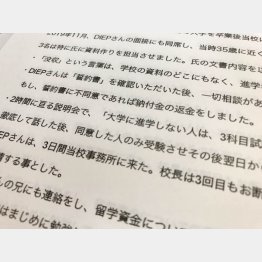 大学を卒業後当校に
2019年11月、DIEPさんの面接にも同席し、当時35歳に近く
2名は時に氏に資料作りを担当させました。氏の文書内容を
・「没収」という言葉は、学校の資料のどこにもなく、進学
・DIEPさんは「誓約書」を確認いただいた後、一切相談があ
もし、誓約書に不同意であれば納付金の返金をしました。
・2時間に亘る説明会で、「大学に進学しない人は、3科目試
認して話した後、同意した人のみ受験させその後翌日から
EPさんは、3日間当校事務所に来た。校長は3回目もお断
する事とした。
んの兄にも連絡をし、留学資金につい
はまじめに勉強